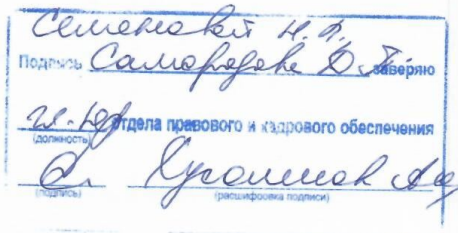 Семеновой Н.Р.
Подпись Самородова Б.Т. заверяю
гл. юр отдела правового и кадрового обеспечения
(должность)
(подпись) (расшифровка подписи)